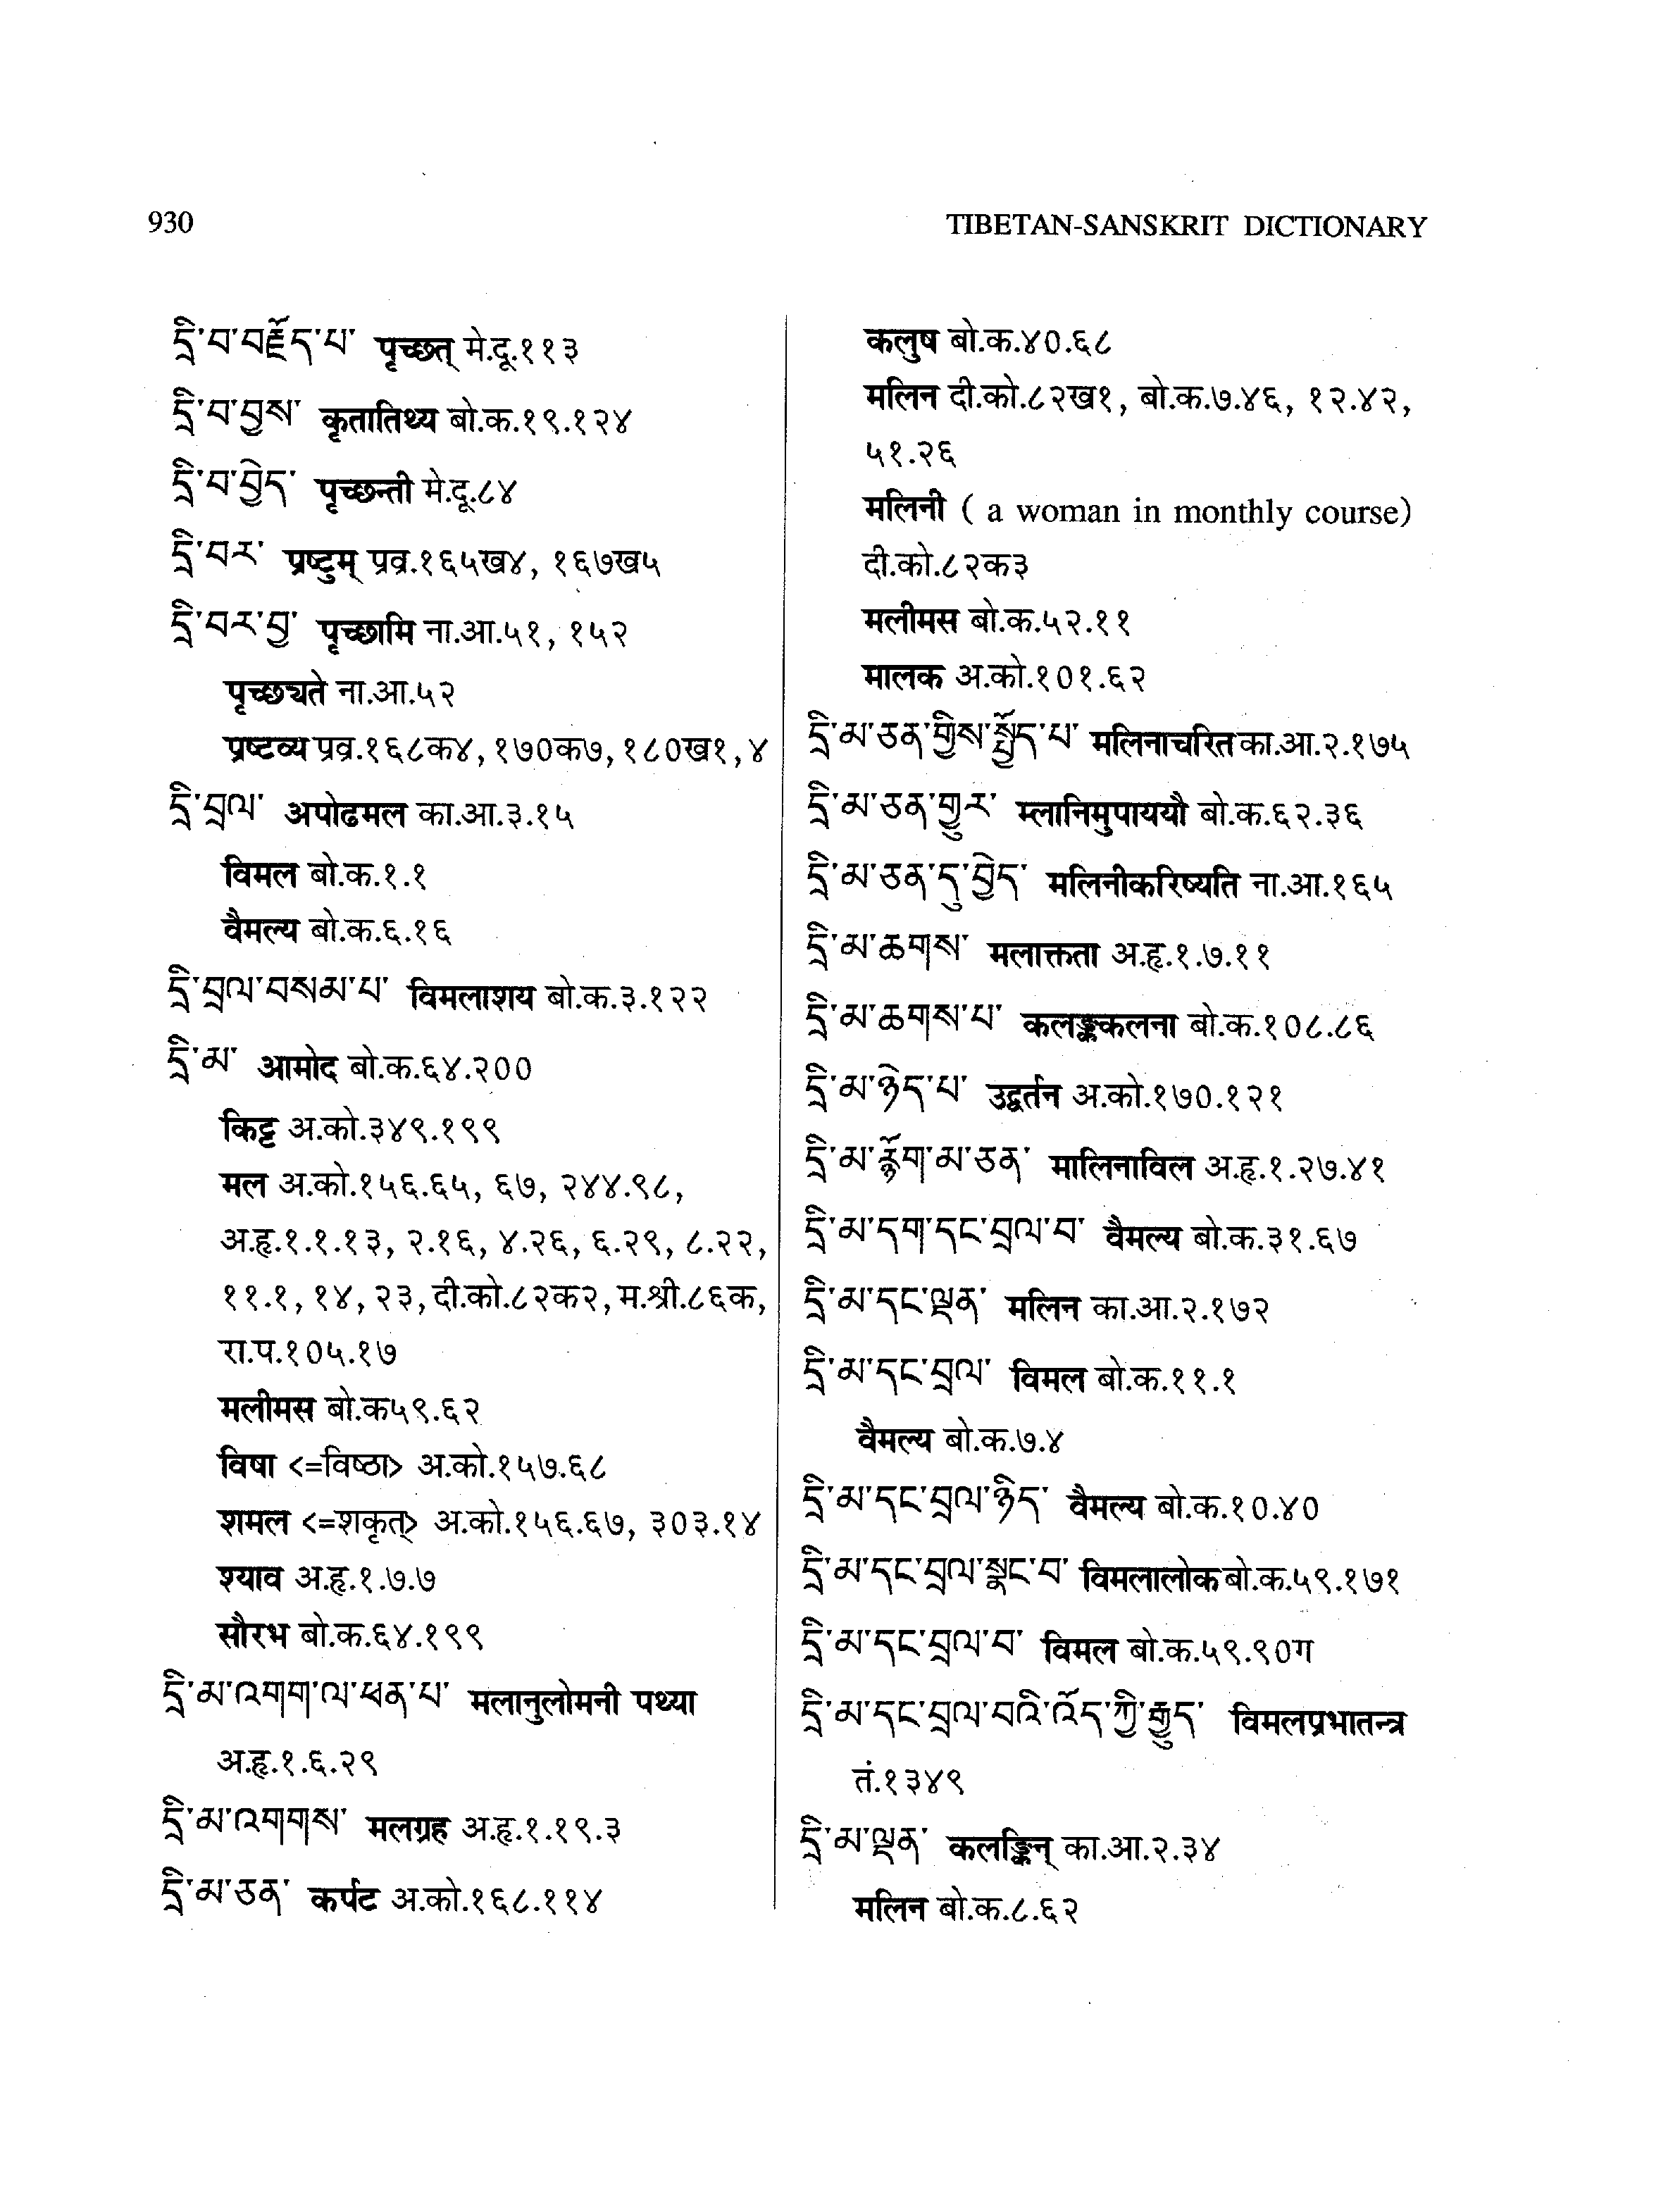 930
TIBETAN-SANSKRIT DICTIONARY
དྲི་བ་བརྗོད་པ་ पृच्छत् मे.दू.११३
དྲི་བ་བྱས་ कृतातिथ्य बो.क.१९.१२४
དྲི་བ་བྱེད་ पृच्छन्ती मे.दू.८४
དྲི་བར་ प्रष्टुम् प्रव्र.१६५ख४, १६७ख५
དྲི་བར་བྱ་ पृच्छामि ना.आ.५१, १५२
पृच्छ्यते ना.आ.५२
प्रष्टव्य प्रव्र.१६८क४, १७०क७, १८०ख१, ४
དྲི་བྲལ་ अपोढमल का.आ.३.१५
विमल बो.क.१.१
वैमल्य बो.क.६.१६
དྲི་བྲལ་བསམ་པ་ विमलाशय बो.क.३.१२२
དྲི་མ་ आमोद बो.क.६४.२००
किट्ट अ.को.३४९.१९९
मल अ.को.१५६.६५, ६७, २४४.९८,
अ.हृ.१.१.१३, २.१६, ४.२६, ६.२९, ८.२२,
११.१, १४, २३, दी.को.८२क२, म.श्री.८६क,
रा.प.१०५.१७
मलीमस बो.क५९.६२
विषा <=विष्ठा> अ.को.१५७.६८
शमल <=शकृत्> अ.को.१५६.६७, ३०३.१४
श्याव अ.हृ.१.७.७
सौरभ बो.क.६४.१९९
དྲི་མ་འགག་ལ་ཕན་པ་ मलानुलोमनी पथ्या
अ.हृ.१.६.२९
དྲི་མ་འགགས་ मलग्रह अ.हृ.१.१९.३
དྲི་མ་ཅན་ कर्पट अ.को.१६८.११४
कलुष बो.क.४०.६८
मलिन दी.को.८२ख१, बो.क.७.४६, १२.४२,
५१.२६
मलिनी ( a woman in monthly course)
दी.को.८२क३
मलीमस बो.क.५२.११
मालक अ.को.१०१.६२
དྲི་མ་ཅན་གྱིས་སྤྱོད་པ་ मलिनाचरित का.आ.२.१७५
དྲི་མ་ཅན་གྱུར་ म्लानिमुपाययौ बो.क.६२.३६
དྲི་མ་ཅན་དུ་བྱེད་ मलिनीकरिष्यति ना.आ.१६५
དྲི་མ་ཆགས་ मलाक्तता अ.हृ.१.७.११
དྲི་མ་ཆགས་པ་ कलङ्ककलना बो.क.१०८.८६
དྲི་མ་ཉེད་པ་ उद्वर्तन अ.को.१७०.१२१
དྲི་མ་རྙོག་མ་ཅན་ मालिनाविल अ.हृ.१.२७.४१
དྲི་མ་དག་དང་བྲལ་བ་ वैमल्य बो.क.३१.६७
དྲི་མ་དང་ལྡན་ मलिन का.आ.२.१७२
དྲི་མ་དང་བྲལ་ विमल बो.क.११.१
वैमल्य बो.क.७.४
དྲི་མ་དང་བྲལ་ཉིད་ वैमल्य बो.क.१०.४०
དྲི་མ་དང་བྲལ་སྣང་བ་ विमलालोक बो.क.५९.१७१
དྲི་མ་དང་བྲལ་བ་ विमल बो.क.५९.९०ग
དྲི་མ་དང་བྲལ་བའི་འོད་ཀྱི་རྒྱུད་ विमलप्रभातन्त्र
तं.१३४९
དྲི་མ་ལྡན་ कलङ्किन् का.आ.२.३४
मलिन बो.क.८.६२